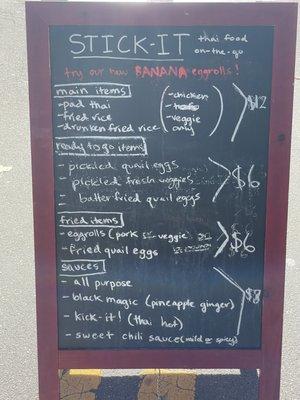 STICK-IT thai food
on-the-go
try our new BANANA eggrolls!
main items
- pad thai
- fried rice
- drunken fried rice
- chicken
- veggie
only
$12
ready to go items
- pickled quail eggs
- pickled fresh veggies
batter fried quail eggs
$6
fried items
- eggrolls (pork veggie
- fried quail eggs
$6
sauces
- all purpose
- black magic (pineapple ginger)
- kick-it! (thai hot)
- sweet chili sauce (mild or spicy)
$8